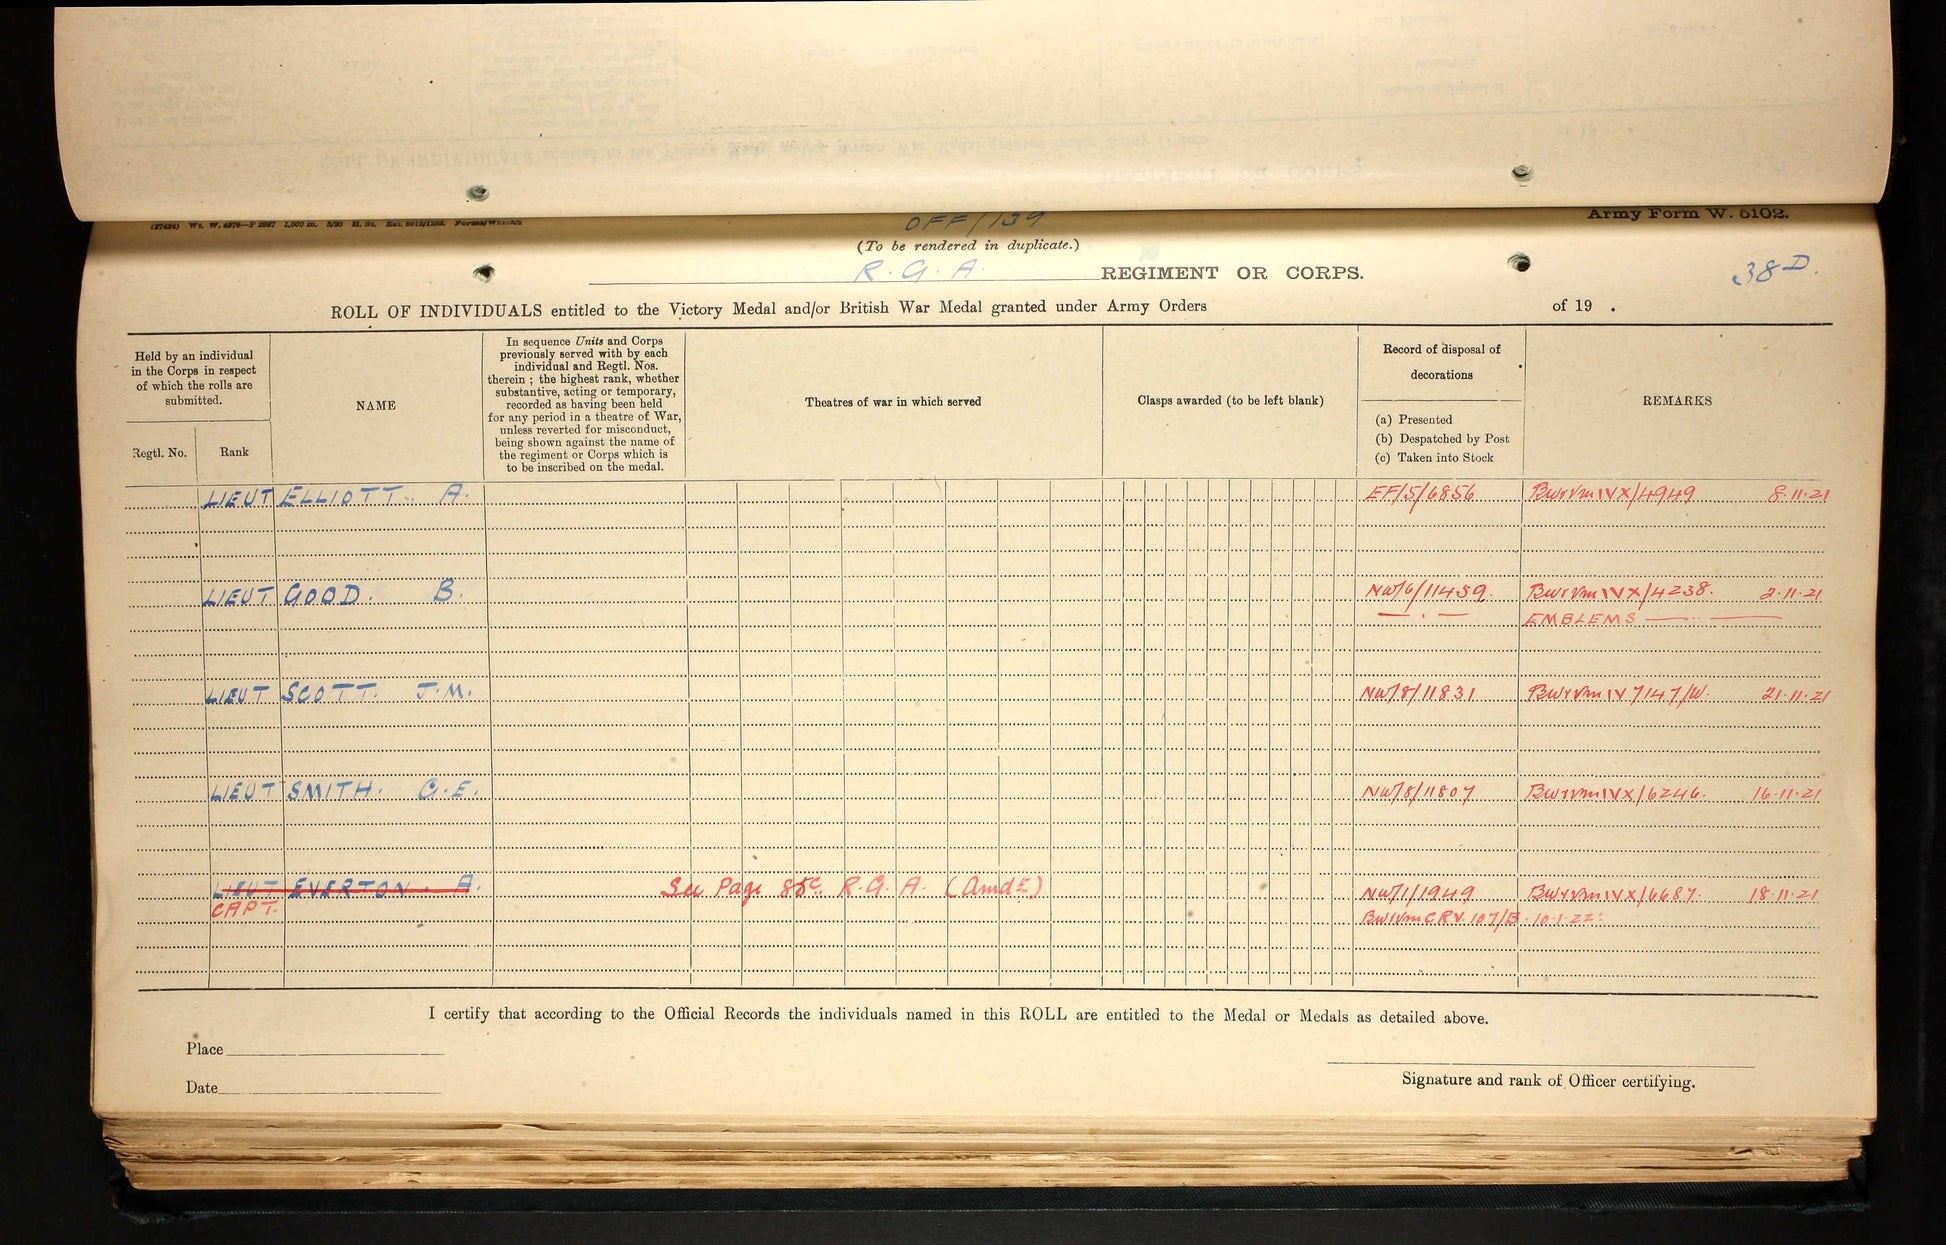 (27424) Wt. W. 4975—P 2367 1,000 m. 3/20 H. St.
OFF/139
Army Form W. 5102.
(To be rendered in duplicate.)
R. G. A. REGIMENT OR CORPS.
38D.
ROLL OF INDIVIDUALS entitled to the Victory Medal and/or British War Medal granted under Army Orders of 19 .
Held by an individual
in the Corps in respect
of which the rolls are
submitted.
Regtl. No.
Rank
NAME
In sequence Units and Corps
previously served with by each
individual and Regtl. Nos.
therein ; the highest rank, whether
substantive, acting or temporary,
recorded as having been held
for any period in a theatre of War,
unless reverted for misconduct,
being shown against the name of
the regiment or Corps which is
to be inscribed on the medal.
Theatres of war in which served
Clasps awarded (to be left blank)
Record of disposal of
decorations
(a) Presented
(b) Despatched by Post
(c) Taken into Stock
REMARKS
LIEUT ELLIOTT. A. EF/5/6856 BW&VM IVX/4949 8.11.21
LIEUT GOOD. B. NW/6/11459. BW&VM IVX/4238. 2.11.21
EMBLEMS
LIEUT SCOTT. J.M. NW/8/11831 BW&VM IV 7147/W. 21.11.21
LIEUT SMITH. G.E. NW/8/11807 BW&VM IVX/6246. 16.11.21
LIEUT EVERTON. A. See Page 85c. R.G.A. (Amdt) NW/1/1949 BW&VM IVX/6687. 18.11.21
CAPT. BW&VM CRV 107/B. 10.1.22.
I certify that according to the Official Records the individuals named in this ROLL are entitled to the Medal or Medals as detailed above.
Place
Date
Signature and rank of Officer certifying.